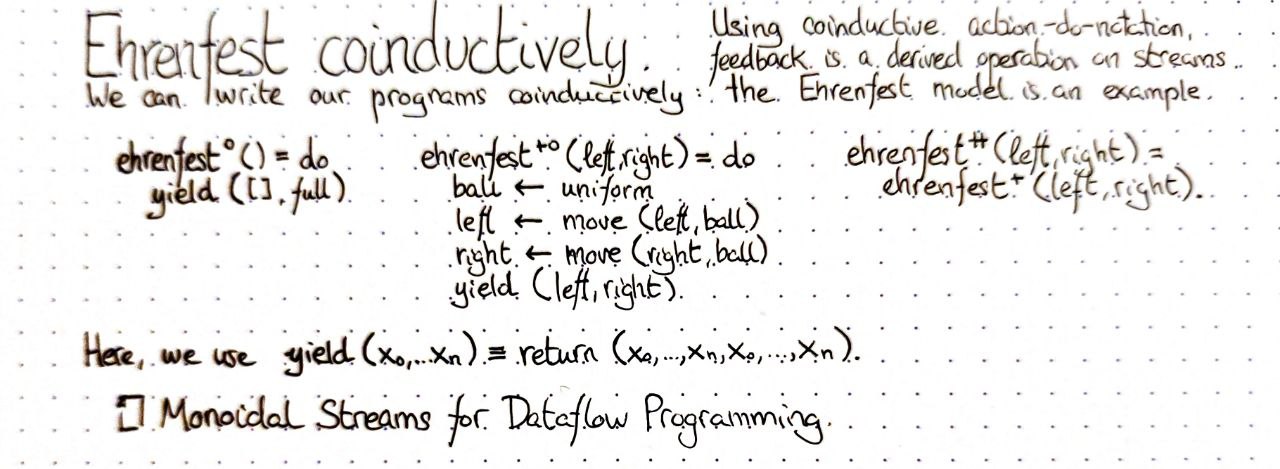 Ehrenfest coinductively.
We can write our programs coinductively:
Using coinductive action-do-notation,
feedback is a derived operation on streams.
the Ehrenfest model is an example.
ehrenfest° () = do
yield ([], full)
ehrenfest⁺° (left, right) = do
ball ← uniform
left ← move (left, ball)
right ← move (right, ball)
yield (left, right).
ehrenfest# (left, right) =
ehrenfest⁺ (left, right).
Here, we use yield (x₀,...xₙ) ≡ return (x₀,...,xₙ,x₀,...,xₙ).
Monoidal Streams for Dataflow Programming.